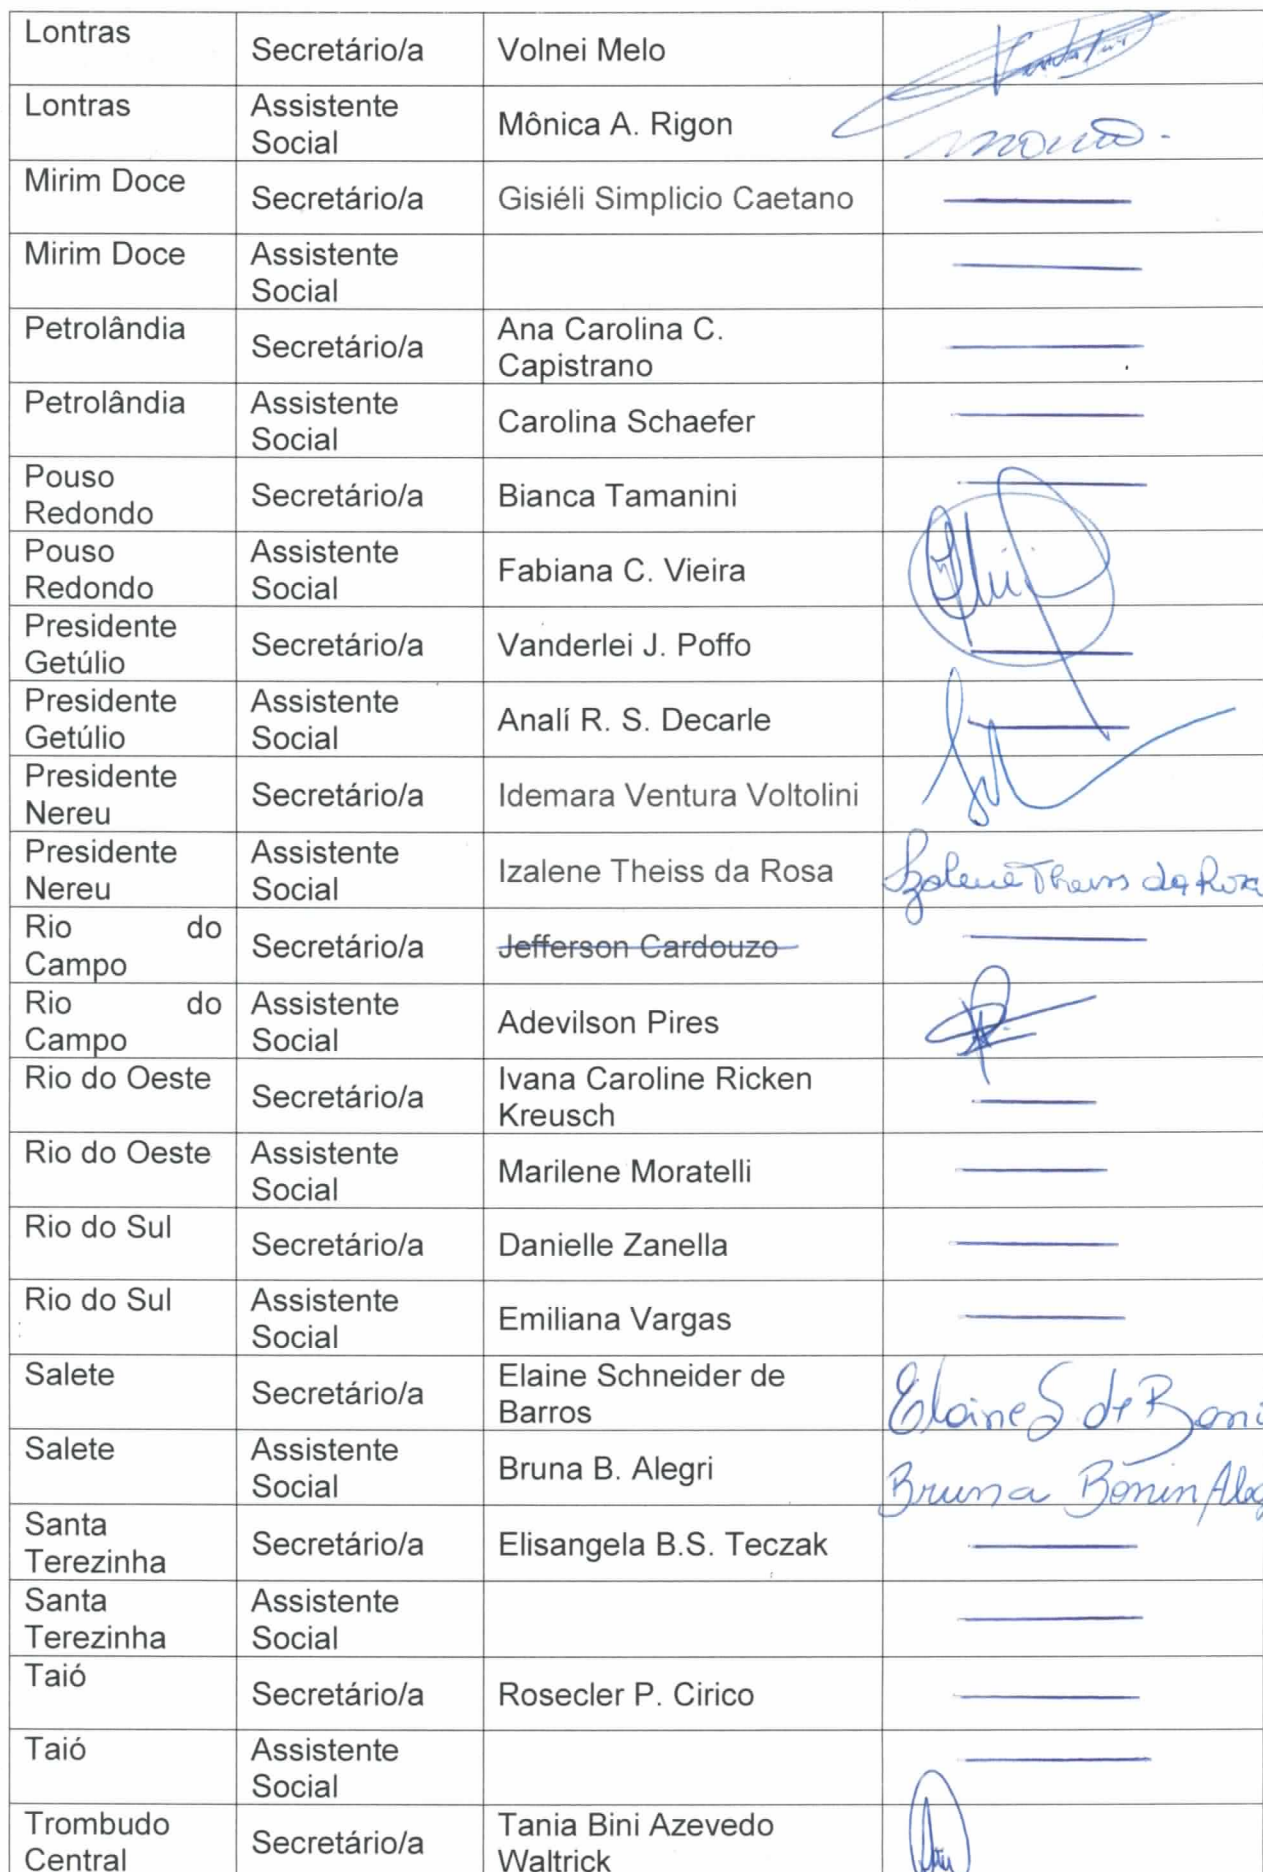 Lontras Secretário/a Volnei Melo
Lontras Assistente Social Mônica A. Rigon
Mirim Doce Secretário/a Gisiéli Simplicio Caetano
Mirim Doce Assistente Social
Petrolândia Secretário/a Ana Carolina C. Capistrano
Petrolândia Assistente Social Carolina Schaefer
Pouso Redondo Secretário/a Bianca Tamanini
Pouso Redondo Assistente Social Fabiana C. Vieira
Presidente Getúlio Secretário/a Vanderlei J. Poffo
Presidente Getúlio Assistente Social Analí R. S. Decarle
Presidente Nereu Secretário/a Idemara Ventura Voltolini
Presidente Nereu Assistente Social Izalene Theiss da Rosa Izalene Theiss da Rosa
Rio do Campo Secretário/a Jefferson Cardouzo
Rio do Campo Assistente Social Adevilson Pires
Rio do Oeste Secretário/a Ivana Caroline Ricken Kreusch
Rio do Oeste Assistente Social Marilene Moratelli
Rio do Sul Secretário/a Danielle Zanella
Rio do Sul Assistente Social Emiliana Vargas
Salete Secretário/a Elaine Schneider de Barros Elaine S de
Salete Assistente Social Bruna B. Alegri Bruna Bonin Aleg
Santa Terezinha Secretário/a Elisangela B.S. Teczak
Santa Terezinha Assistente Social
Taió Secretário/a Rosecler P. Cirico
Taió Assistente Social
Trombudo Central Secretário/a Tania Bini Azevedo Waltrick